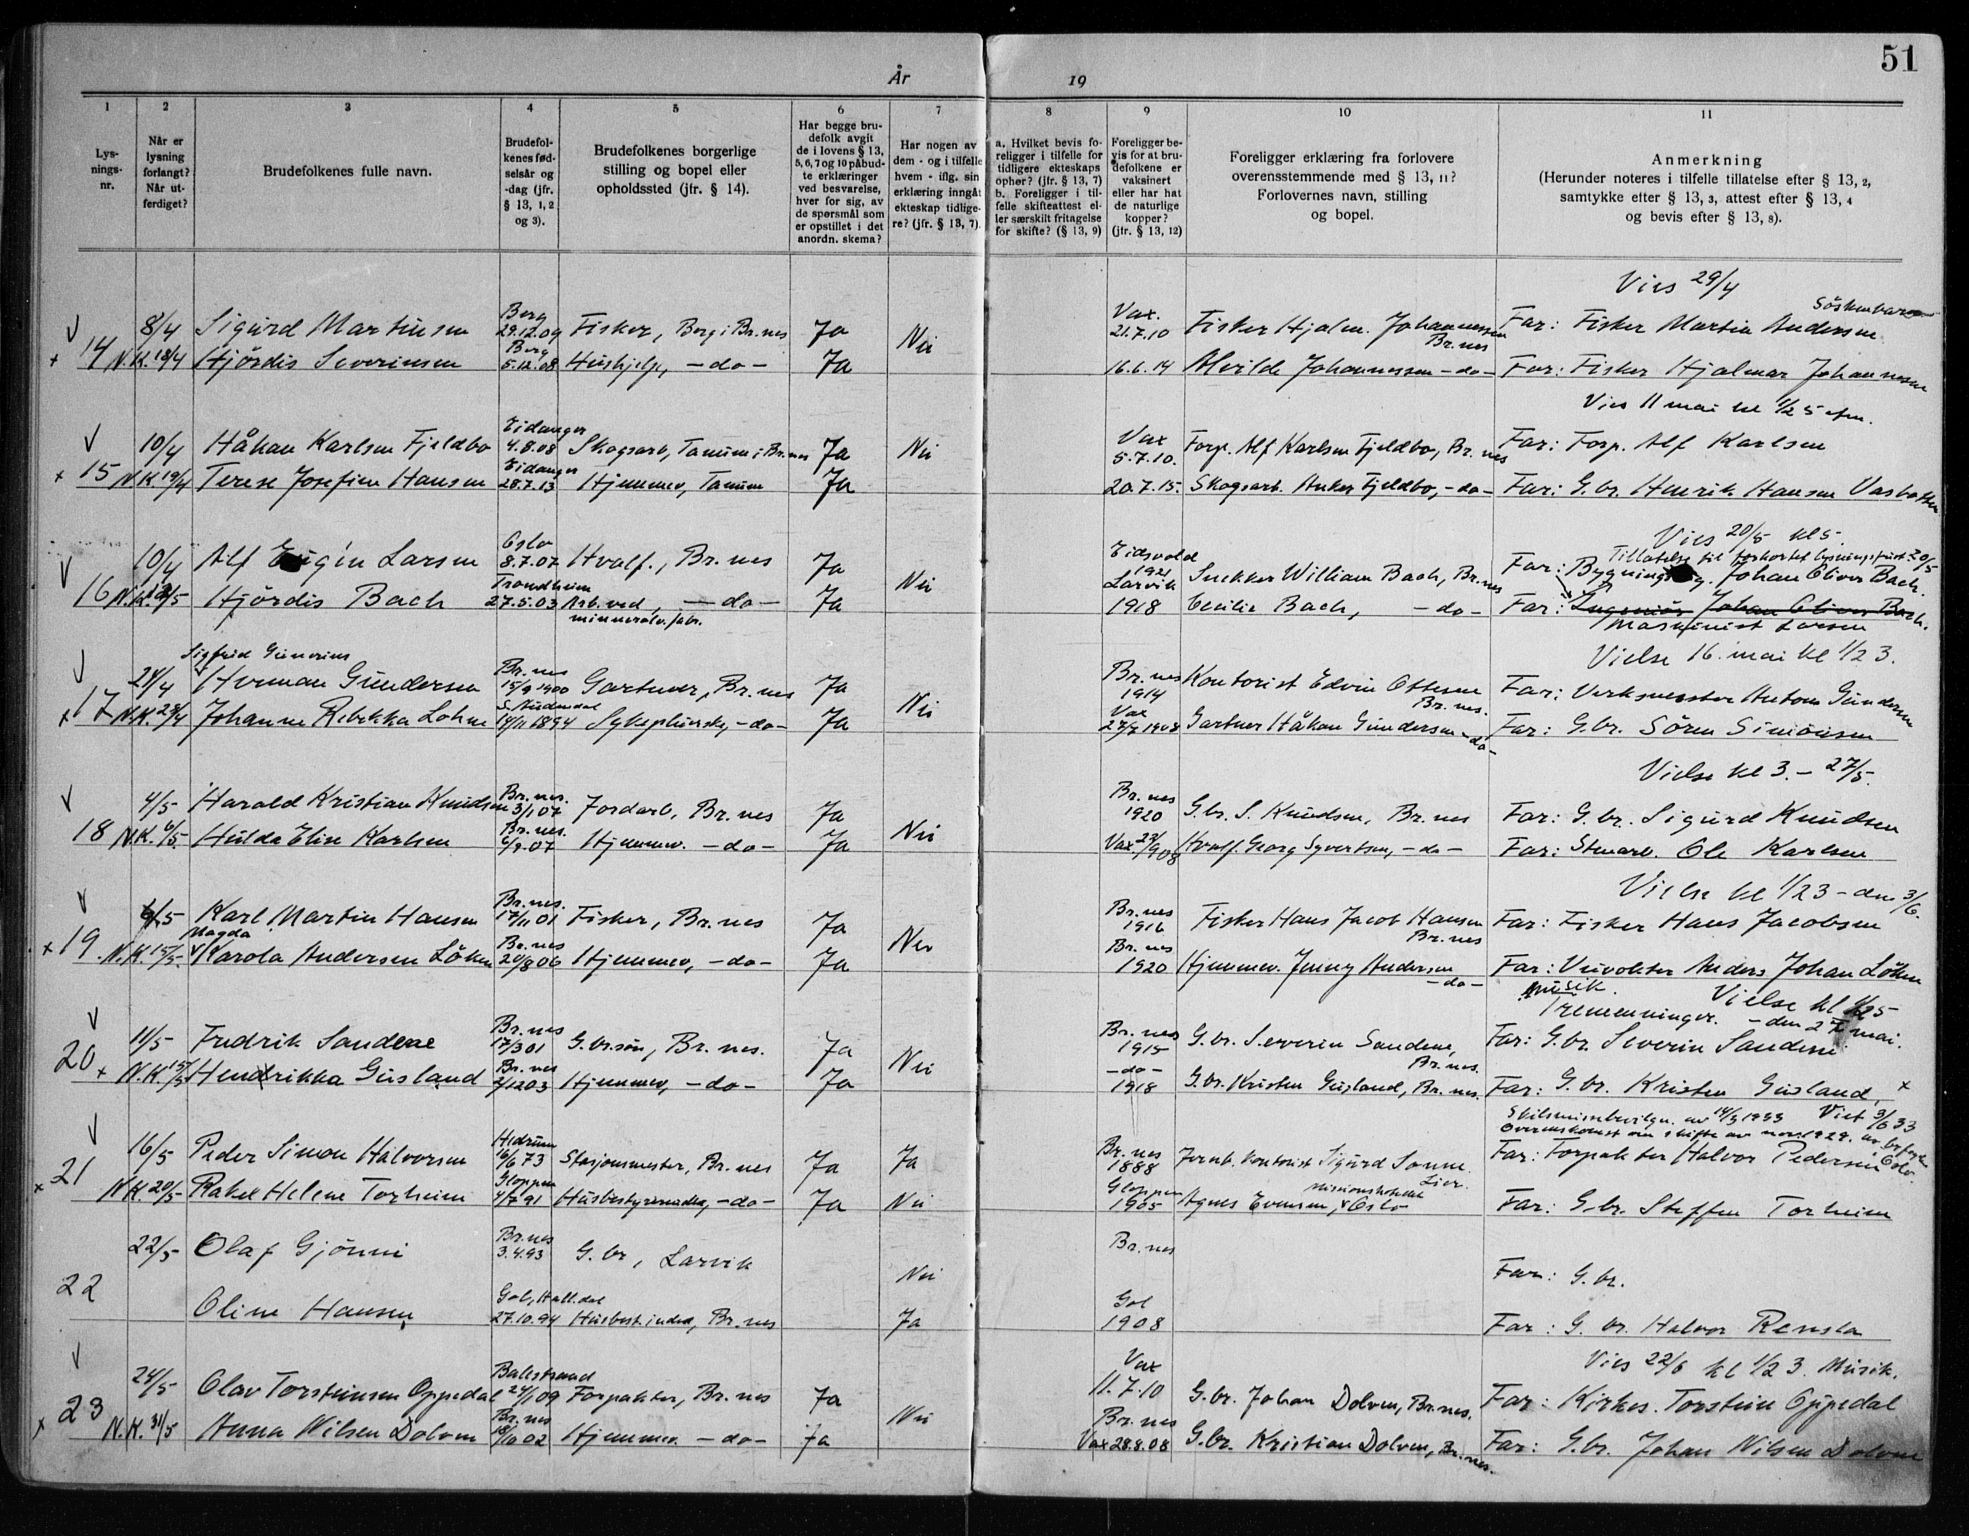 51
År 19
1 2 3 4 5 6 7 8 9 10 11
Lysningsnr.
Når er lysning forlangt? Når utferdiget?
Brudefolkenes fulle navn.
Brudefolkenes fødselsår og -dag (jfr. § 13, 1, 2 og 3).
Brudefolkenes borgerlige stilling og bopel eller opholdssted (jfr. § 14).
Har begge brudefolk avgitt de i lovens § 13, 5, 6, 7 og 10 påbudte erklæringer ved besvarelse, hver for sig, av de spørsmål som er opstillet i det anordn. skema?
Har nogen av dem - og i tilfelle hvem - iflg. sin erklæring inngått ekteskap tidligere? (jfr. § 13, 7)
a. Hvilket bevis foreligger i tilfelle for tidligere ekteskaps ophør? (jfr. § 13, 7) b. Foreligger i tilfelle skifteattest eller særskilt fritagelse for skifte? (§ 13, 9)
Foreligger bevis for at brudefolkene er vaksinert eller har hat de naturlige kopper? (jfr. § 13, 12)
Foreligger erklæring fra forlovere overensstemmende med § 13, 11? Forlovernes navn, stilling og bopel.
Anmerkning (Herunder noteres i tilfelle tillatelse efter § 13, 2, samtykke etter § 13, 3, attest efter § 13, 4 og bevis efter § 13, 8).
Vies 29/4
Søskenbarn
V 8/4 Sigurd Martinsen Berg 29.12.09 Fisker, Berg i Br.nes Ja Nei Vax. 21.7.10 Fisker Hjalm. Johannessen Br.nes Far: Fisker Martin Andersen
x 14 N.K. 18/4 Hjördis Severinsen Berg 5.12.08 Hushjelp, -do- Ja 16.6.14 Alvilde Johannessen -do- Far: Fisker Hjalmar Johannessen
Vies 11 mai kl 1/2 5 efm.
V 10/4 Håkan Karlsen Fjeldbo Eidanger 4.8.08 Skogsarb, Tanum i Br.nes Ja Nei Vax 5.7.10. Forp. Alf Karlsen Fjeldbo, Br.nes Far: Forp. Alf Karlsen
x 15 N.K 19/4 Terese Josefine Hansen Eidanger 28.7.13 Hjemmev, Tanum Ja 20.7.15. Skogsarb. Anker Fjeldbo, -do- Far: G.br. Henrik Hansen Vasbotten
Vies 20/5 kl 5.
Tillatelse til forkortet lysningsfrist 20/5
V 10/4 Alf Eugén Larsen Oslo 8.7.07 Hvalf., Br.nes Ja Nei Eidsvold 1921 Snekker William Bach, Br.nes Far: Bygningsing. Johan Oliver Bach.
16 N.K. 12/5 Hjördis Bach Trondheim 27.5.03 Arb. ved minneralv. fabr. -do- Ja Larvik 1918 Cecilie Bach, -do- Far: Ingeniör Johan Oliver Bach.
Maskinist Larsen
Vielse 16. mai kl 1/2 3.
Sigfrid Gunerius
V 24/4 Herman Gundersen Br.nes 15/9 1900 Gartner, Br.nes Ja Nei Br.nes 1914 Kontorist Edvin Ottesen Br.nes. Far: Verksmester Antom Gundersen
x 17 N.K. 28/4 Johanne Rebekka Lohne S. Audnedal 14/11 1894 Sykepleierske, -do- Ja Vax 27/7 1908 Gartner Håkon Gundersen -do- Far: G.br. Sören Simonsen
Vielse kl 3. - 27/5.
V 4/5 Harald Kristian Knudsen Br.nes. 3/1 07 Jordarb, Br.nes Ja Nei Br.nes 1920 G.br. S. Knudsen, Br.nes Far: G.br. Sigurd Knudsen
18 N.K. 6/5. Hulda Elise Karlsen Br.nes. 6/9.07 Hjemmev. -do- Ja Vax 23/9 08 Hvalf. Georg Syvertsen, -do- Far: Stenarb. Ole Karlsen
Vielse kl 1/2 3 - den 3/6.
V 6/5 Karl Martin Hansen Br.nes. 17/11 01 Fisker, Br.nes Ja Nei Br.nes 1916 Fisker Hans Jacob Hansen Br.nes Far: Fisker Hans Jacobsen
Magda
x 19 N.K. 15/5. Karola Andersen Löken Br.nes 20/8 06 Hjemmev, -do- Ja Br.nes 1920 Hjemmev. Jenny Andersen -do- Far: Veivokter Anders Johan Löken
Musik. Vielse kl 1/2 5
Tremenninger. - den 27 mai.
V 11/5 Fredrik Sandene Br.nes 17/3 01 G.br.sön, Br.nes. Ja Nei Br.nes 1915 G.br. Severin Sandene, Br.nes. Far: G.br. Severin Sandene
20 x N.K. 15/5 Hendrikka Gusland Br.nes 2/12 03 Hjemmev, -do- Ja -do- 1918 G.br. Kristen Gusland, Br.nes. Far: G.br. Kristen Gusland, x
Skilsmissebevilgn. av 14/3 1933 Viet 3/6 33
Overenskomst om skifte av nov. 1929. av byfogden i Oslo.
V 16/5 Peder Simon Halvorsen Hedrum 16/6 73 Stasjonsmester, Br.nes Ja Ja Br.nes 1888 Jernb. kontorist Sigurd Sonne. Lier. Far: Forpakter Halvor Pedersen
x 21 N.K 20/5. Rakel Helene Torheim Gloppen 4/7 91 Husbestyrerinde, -do- Ja Nei Gloppen 1905 Agnes Evensen, Missionshotellet Oslo Far: G.br. Steffen Torheim
22/5 Olaf Gjönni Br.nes 3.4.93 G.br, Larvik Nei Br.nes Far: G.br.
22 Oline Hansen Gol, Hall.dal 27.10.94 Husbest.inde, Br.nes Ja Gol 1908 Far: G.br. Halvor Rensla
Vies 22/6 kl 1/2 3. Musik.
V 24/5 Olav Torsteinsen Oppedal Balestrand 24/1 09 Forpakter, Br.nes Ja Nei Vax 11.7.10 G.br. Johan Dolven, Br.nes. Far: Kirkes. Torstein Oppedal
x 23 N.K. 31/5 Anna Nilsen Dolven Br.nes 18/10 02 Hjemmev. -do- Ja Br.nes Vax 28.8.08 G.br. Kristian Dolven, Br.nes. Far: G.br. Johan Nilsen Dolven